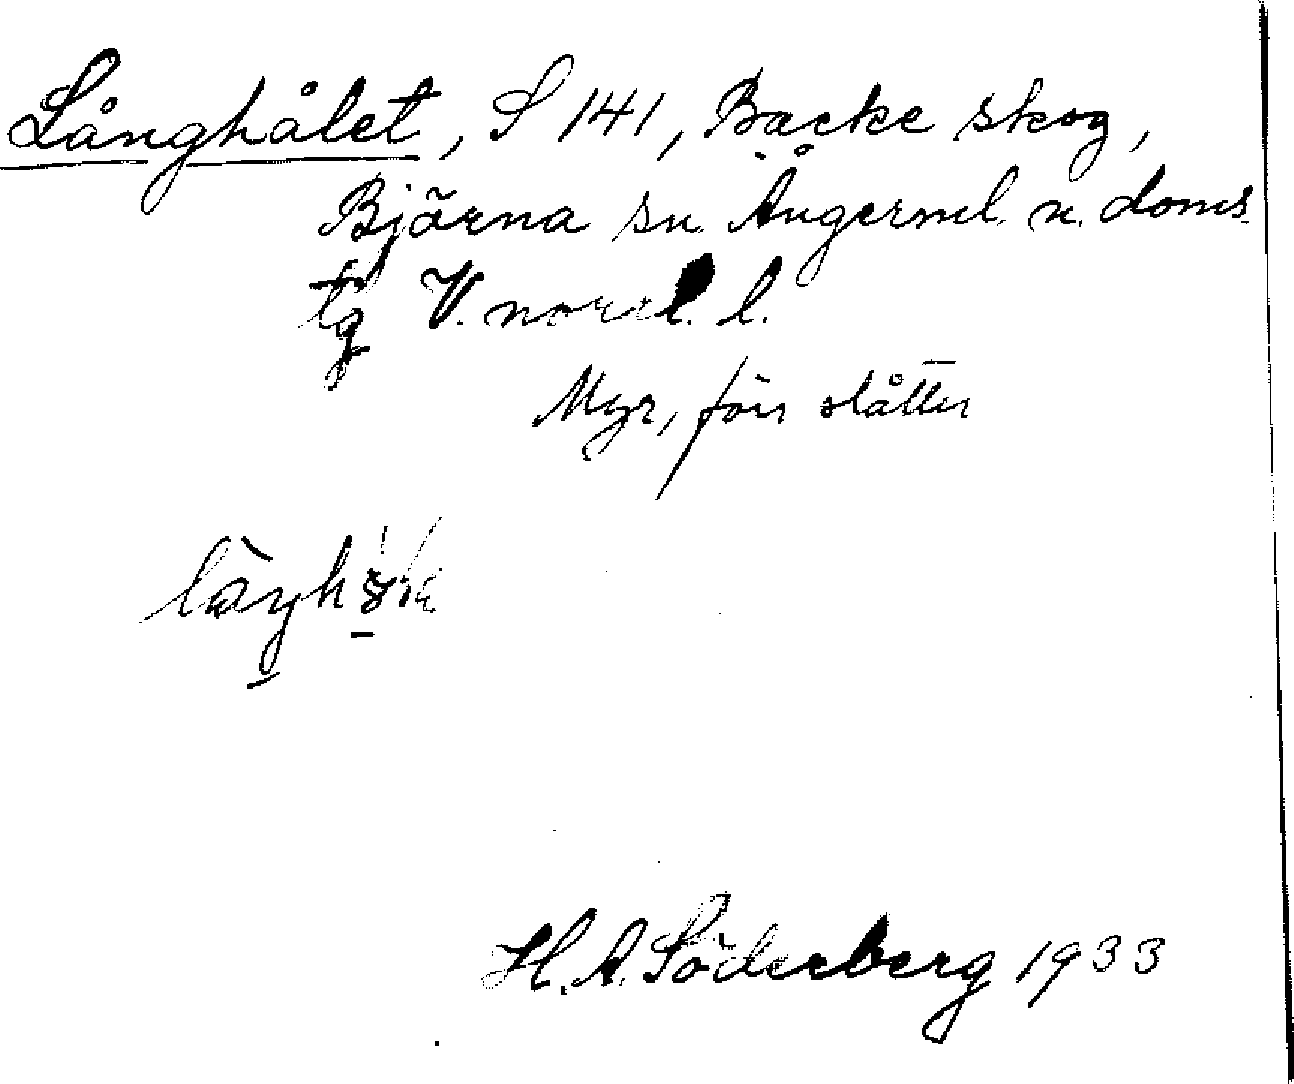 Långhålet, S 141, Backe skog,
Bjärna sn. Ångerml. n. doms.
tg V. norrl. l.
Myr, förr slåtter
H. A. Söderberg 1933